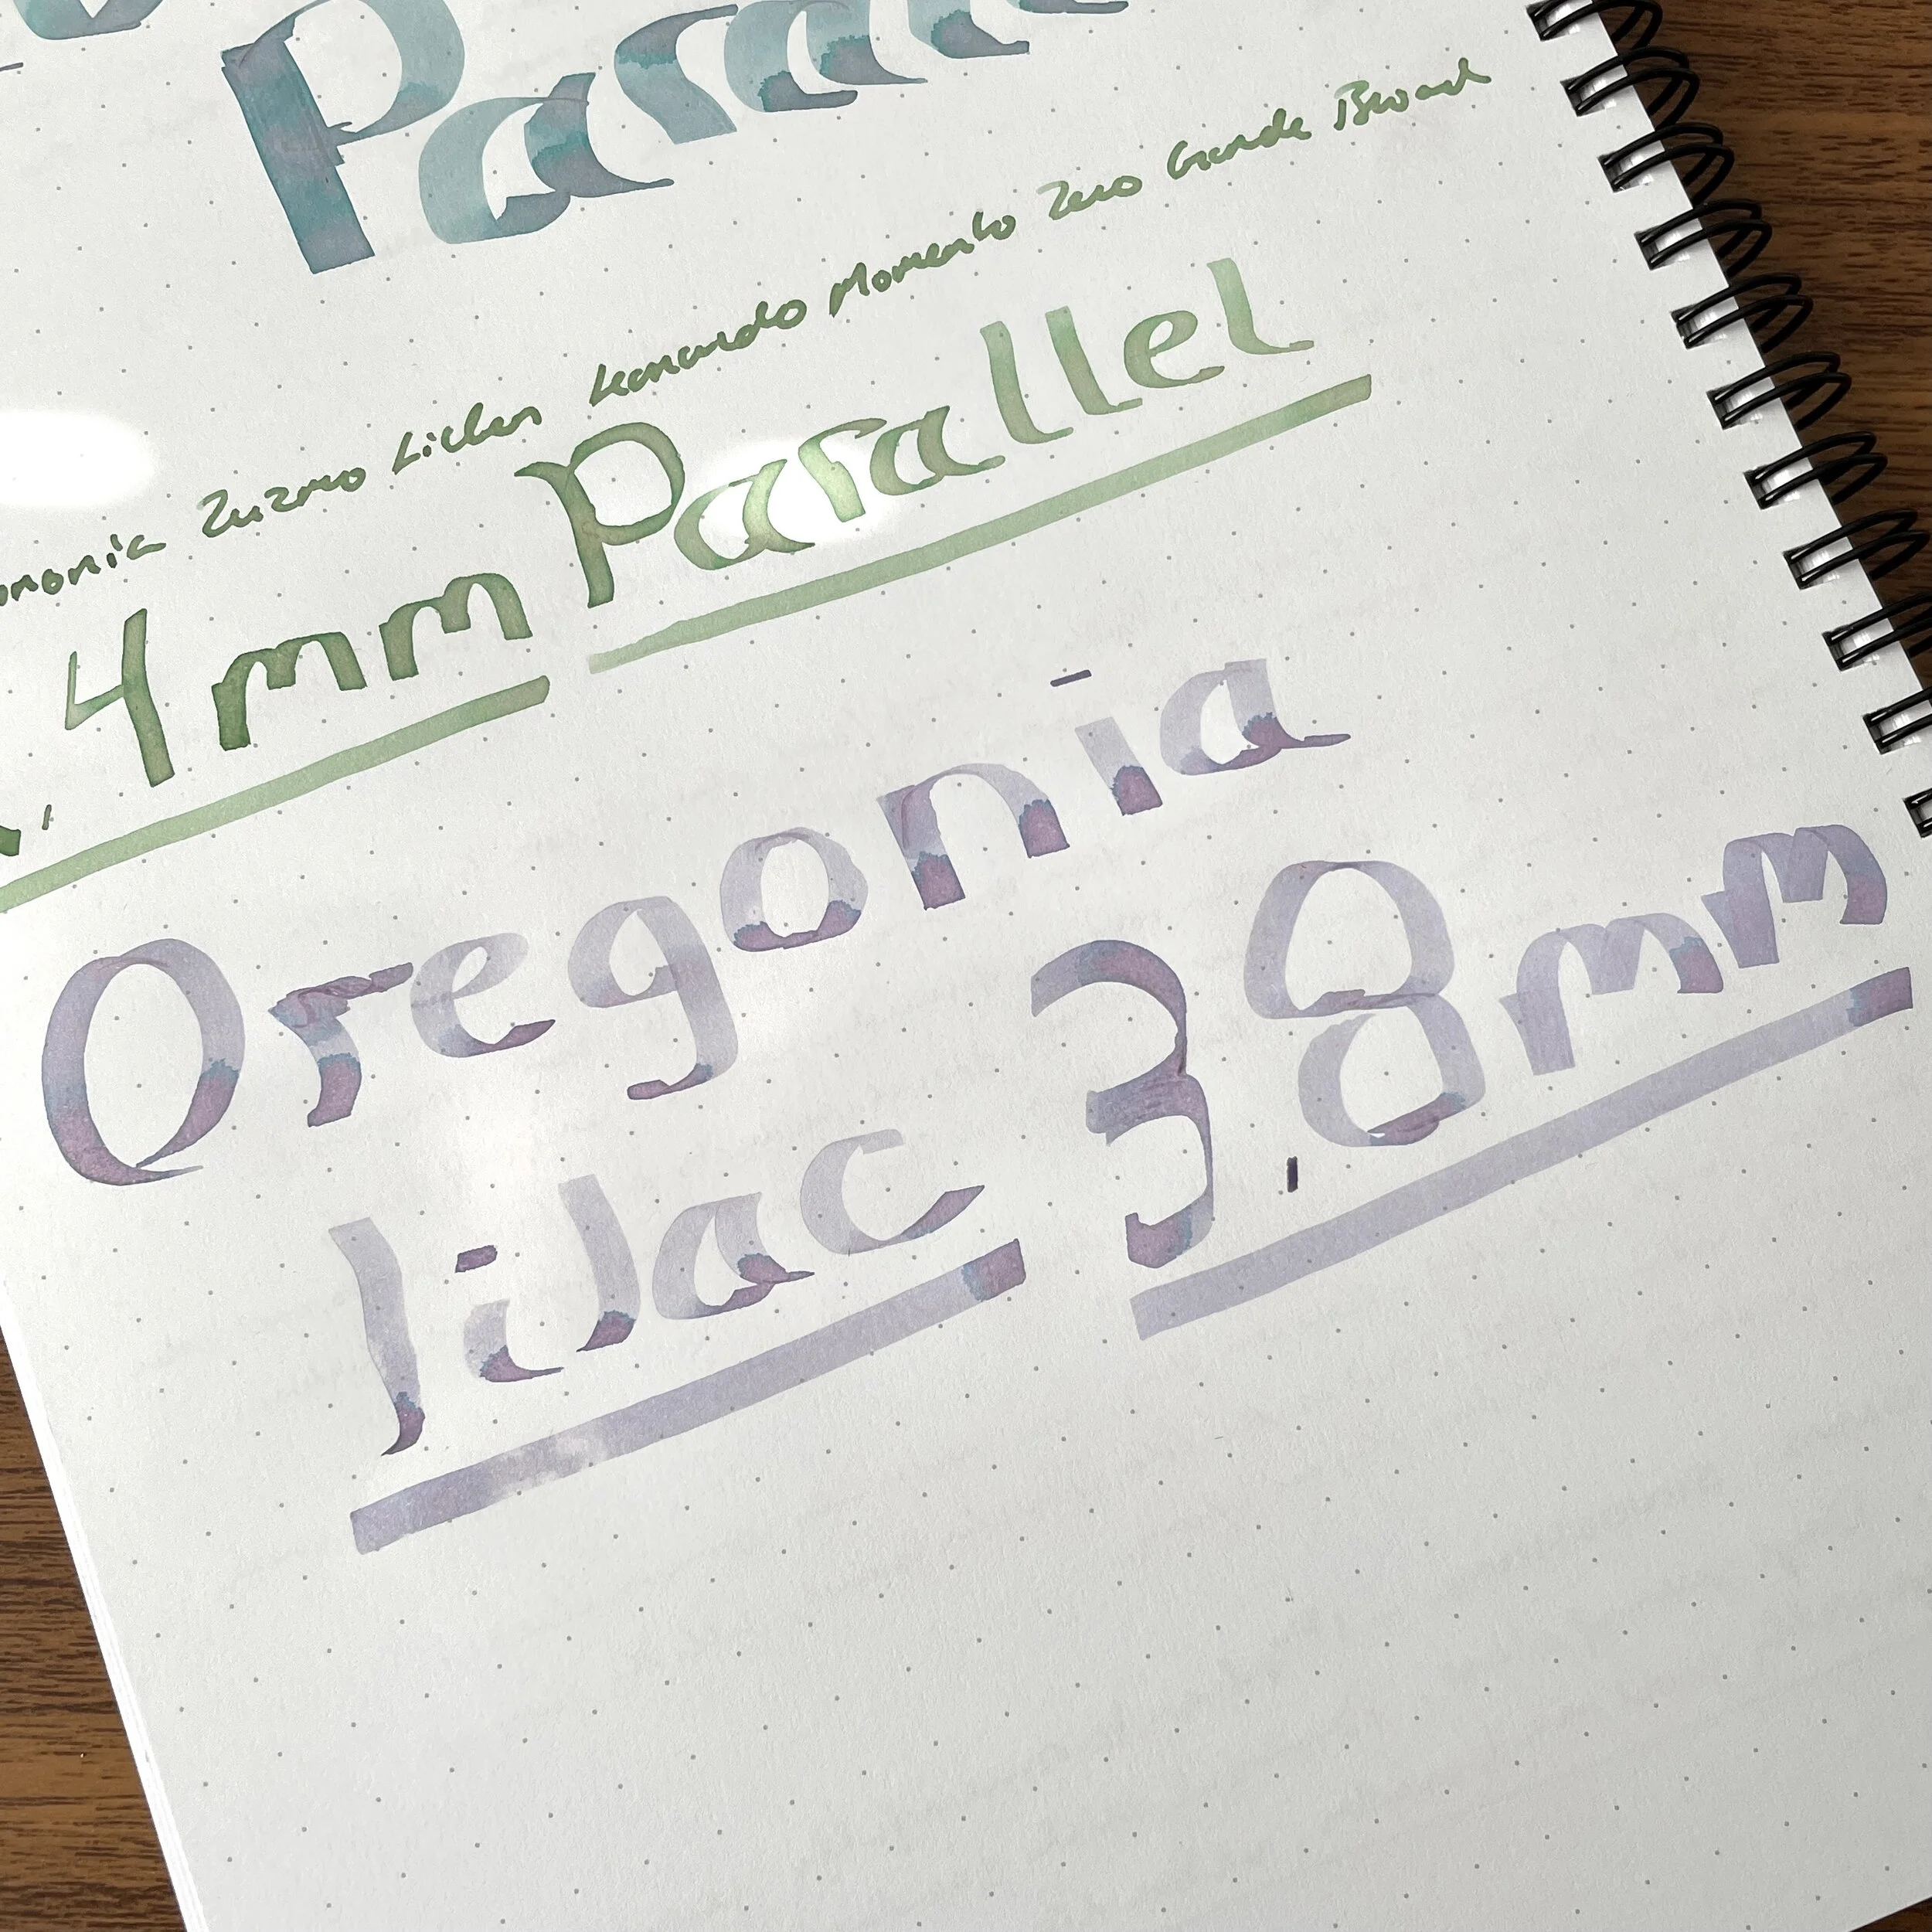 Paralle
Zuzmo Lichen Leonardo Momento Zero Grande Broad
2.4mm Parallel
Oregonia
lilac 3.8mm